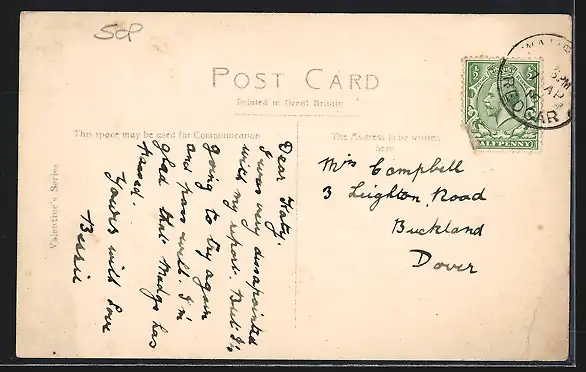 50P
POST CARD
Printed in Great Britain
This space may be used for Communication
The Address to be written
here.
Valentine's Series
Dear Katy.
I was very dissapointed
with my report. But I's
going to try again
and pass well. I'm
glad that Madge has
passed.
Yours with love
Bessie
Mrs Campbell
3 Leighton Road
Buckland
Dover
HALFPENNY
REDCAR
AP
PM